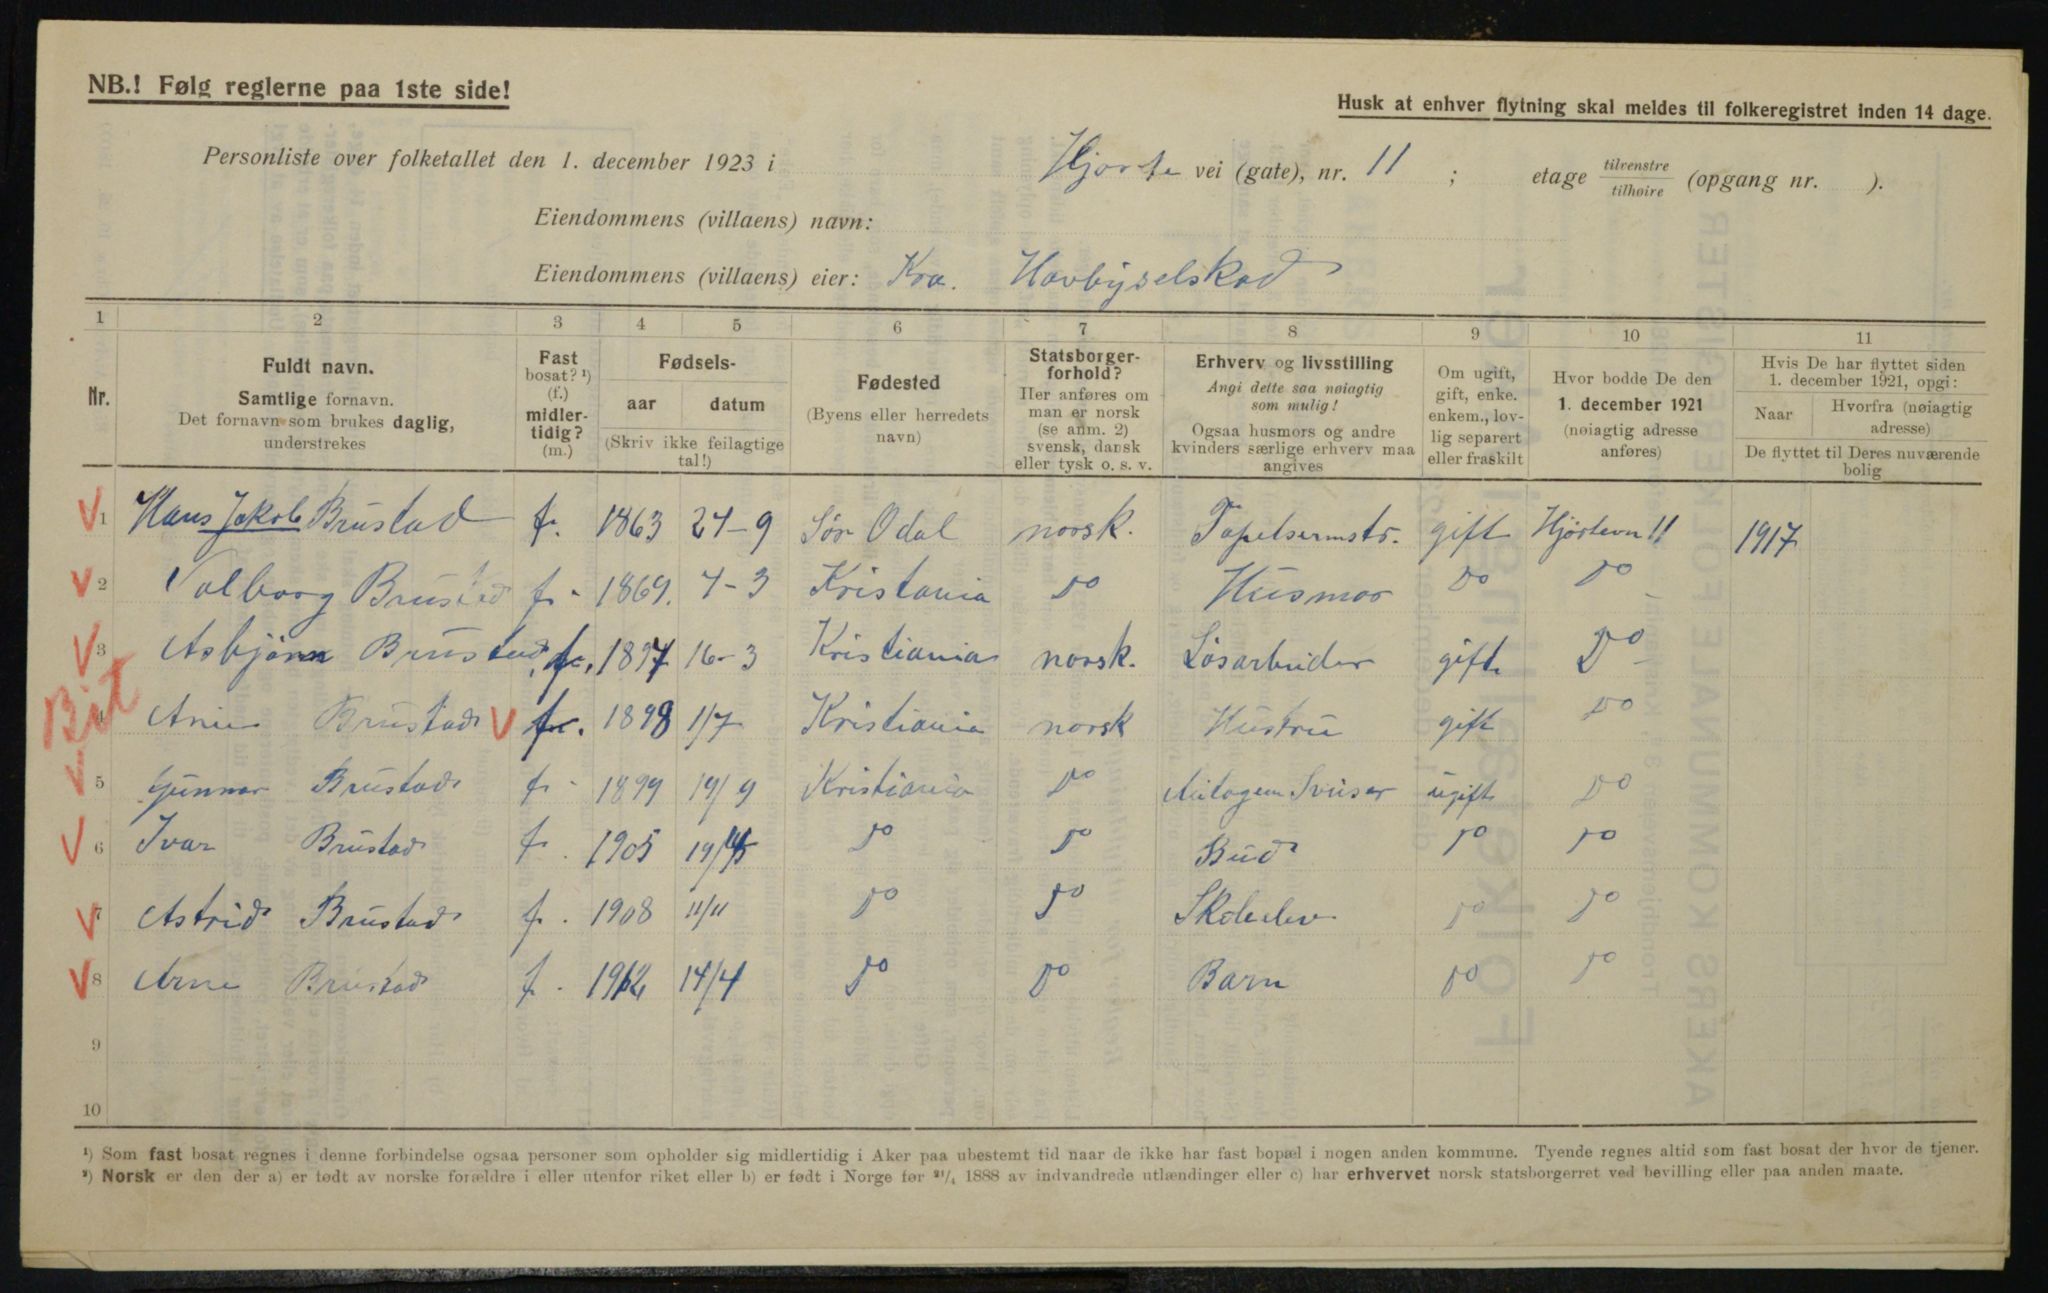 NB.! Følg reglerne paa 1ste side!
Husk at enhver flytning skal meldes til folkeregistret inden 14 dage.
Personliste over folketallet den 1. december 1923 i Hjorte vei (gate), nr. 11 ; etage tilvenstre / tilhøire (opgang nr. ).
Eiendommens (villaens) navn:
Eiendommens (villaens) eier: Kra. Havbyselskad
1 2 3 4 5 6 7 8 9 10 11
Nr.
Fuldt navn.
Samtlige fornavn.
Det fornavn som brukes daglig,
understrekes
Fast
bosat? ¹)
(f.)
midler-
tidig?
(m.)
Fødsels-
aar datum
(Skriv ikke feilagtige
tal!)
Fødested
(Byens eller herredets
navn)
Statsborger-
forhold?
Her anføres om
man er norsk
(se anm. 2)
svensk, dansk
eller tysk o. s. v.
Erhverv og livsstilling
Angi dette saa nøiagtig
som mulig!
Ogsaa husmors og andre
kvinders særlige erhverv maa
angives
Om ugift,
gift, enke.
enkem., lov-
lig separert
eller fraskilt
Hvor bodde De den
1. december 1921
(nøiagtig adresse
anføres)
Hvis De har flyttet siden
1. december 1921, opgi:
Naar Hvorfra (nøiagtig
adresse)
De flyttet til Deres nuværende
bolig
1 Hans Jakob Brustad f. 1863 27-9 Sør Odal norsk. Tapetsermstr. gift Hjorteven 11 1917
2 Valborg Brustad f. 1869. 7-3 Kristania Do Husmor Do Do
3 Asbjørn Brustad f. 1897 16-3 Kristiania norsk. Løsarbeider gift Do
Bit
4 Brustad f. 1898 1/7 Kristiania norsk Hustru gift Do
5 Gunnar Brustad f. 1899 19/9 Kristiania Do ugift Do
6 Ivar Brustad f. 1905 Do Do Bud Do Do
7 Astrid Brustad f. 1908 11/11 Do Do Skoleelev Do Do
8 Arne Brustad f. 1912 14/4 Do Do Barn Do Do
9
10
¹) Som fast bosat regnes i denne forbindelse ogsaa personer som opholder sig midlertidig i Aker paa ubestemt tid naar de ikke har fast bopæl i nogen anden kommune. Tyende regnes altid som fast bosat der hvor de tjener.
²) Norsk er den der a) er født av norske forældre i eller utenfor riket eller b) er født i Norge før 21/4 1888 av indvandrede utlændinger eller c) har erhvervet norsk statsborgerret ved bevilling eller paa anden maate.